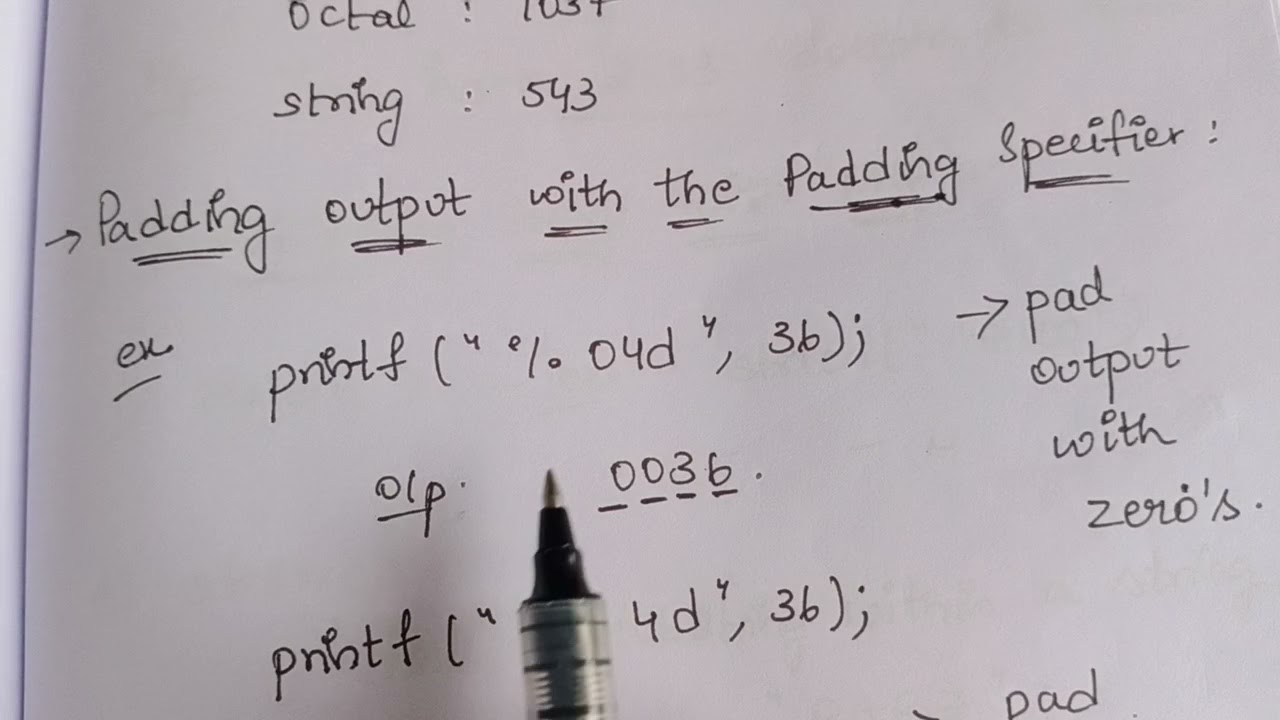 Octal : 1037
string : 543
→ Padding output with the Padding Specifier :
ex printf ("%04d", 36); → pad
output
with
zero's.
o/p. 0036.
printf (" 4d", 36);
pad